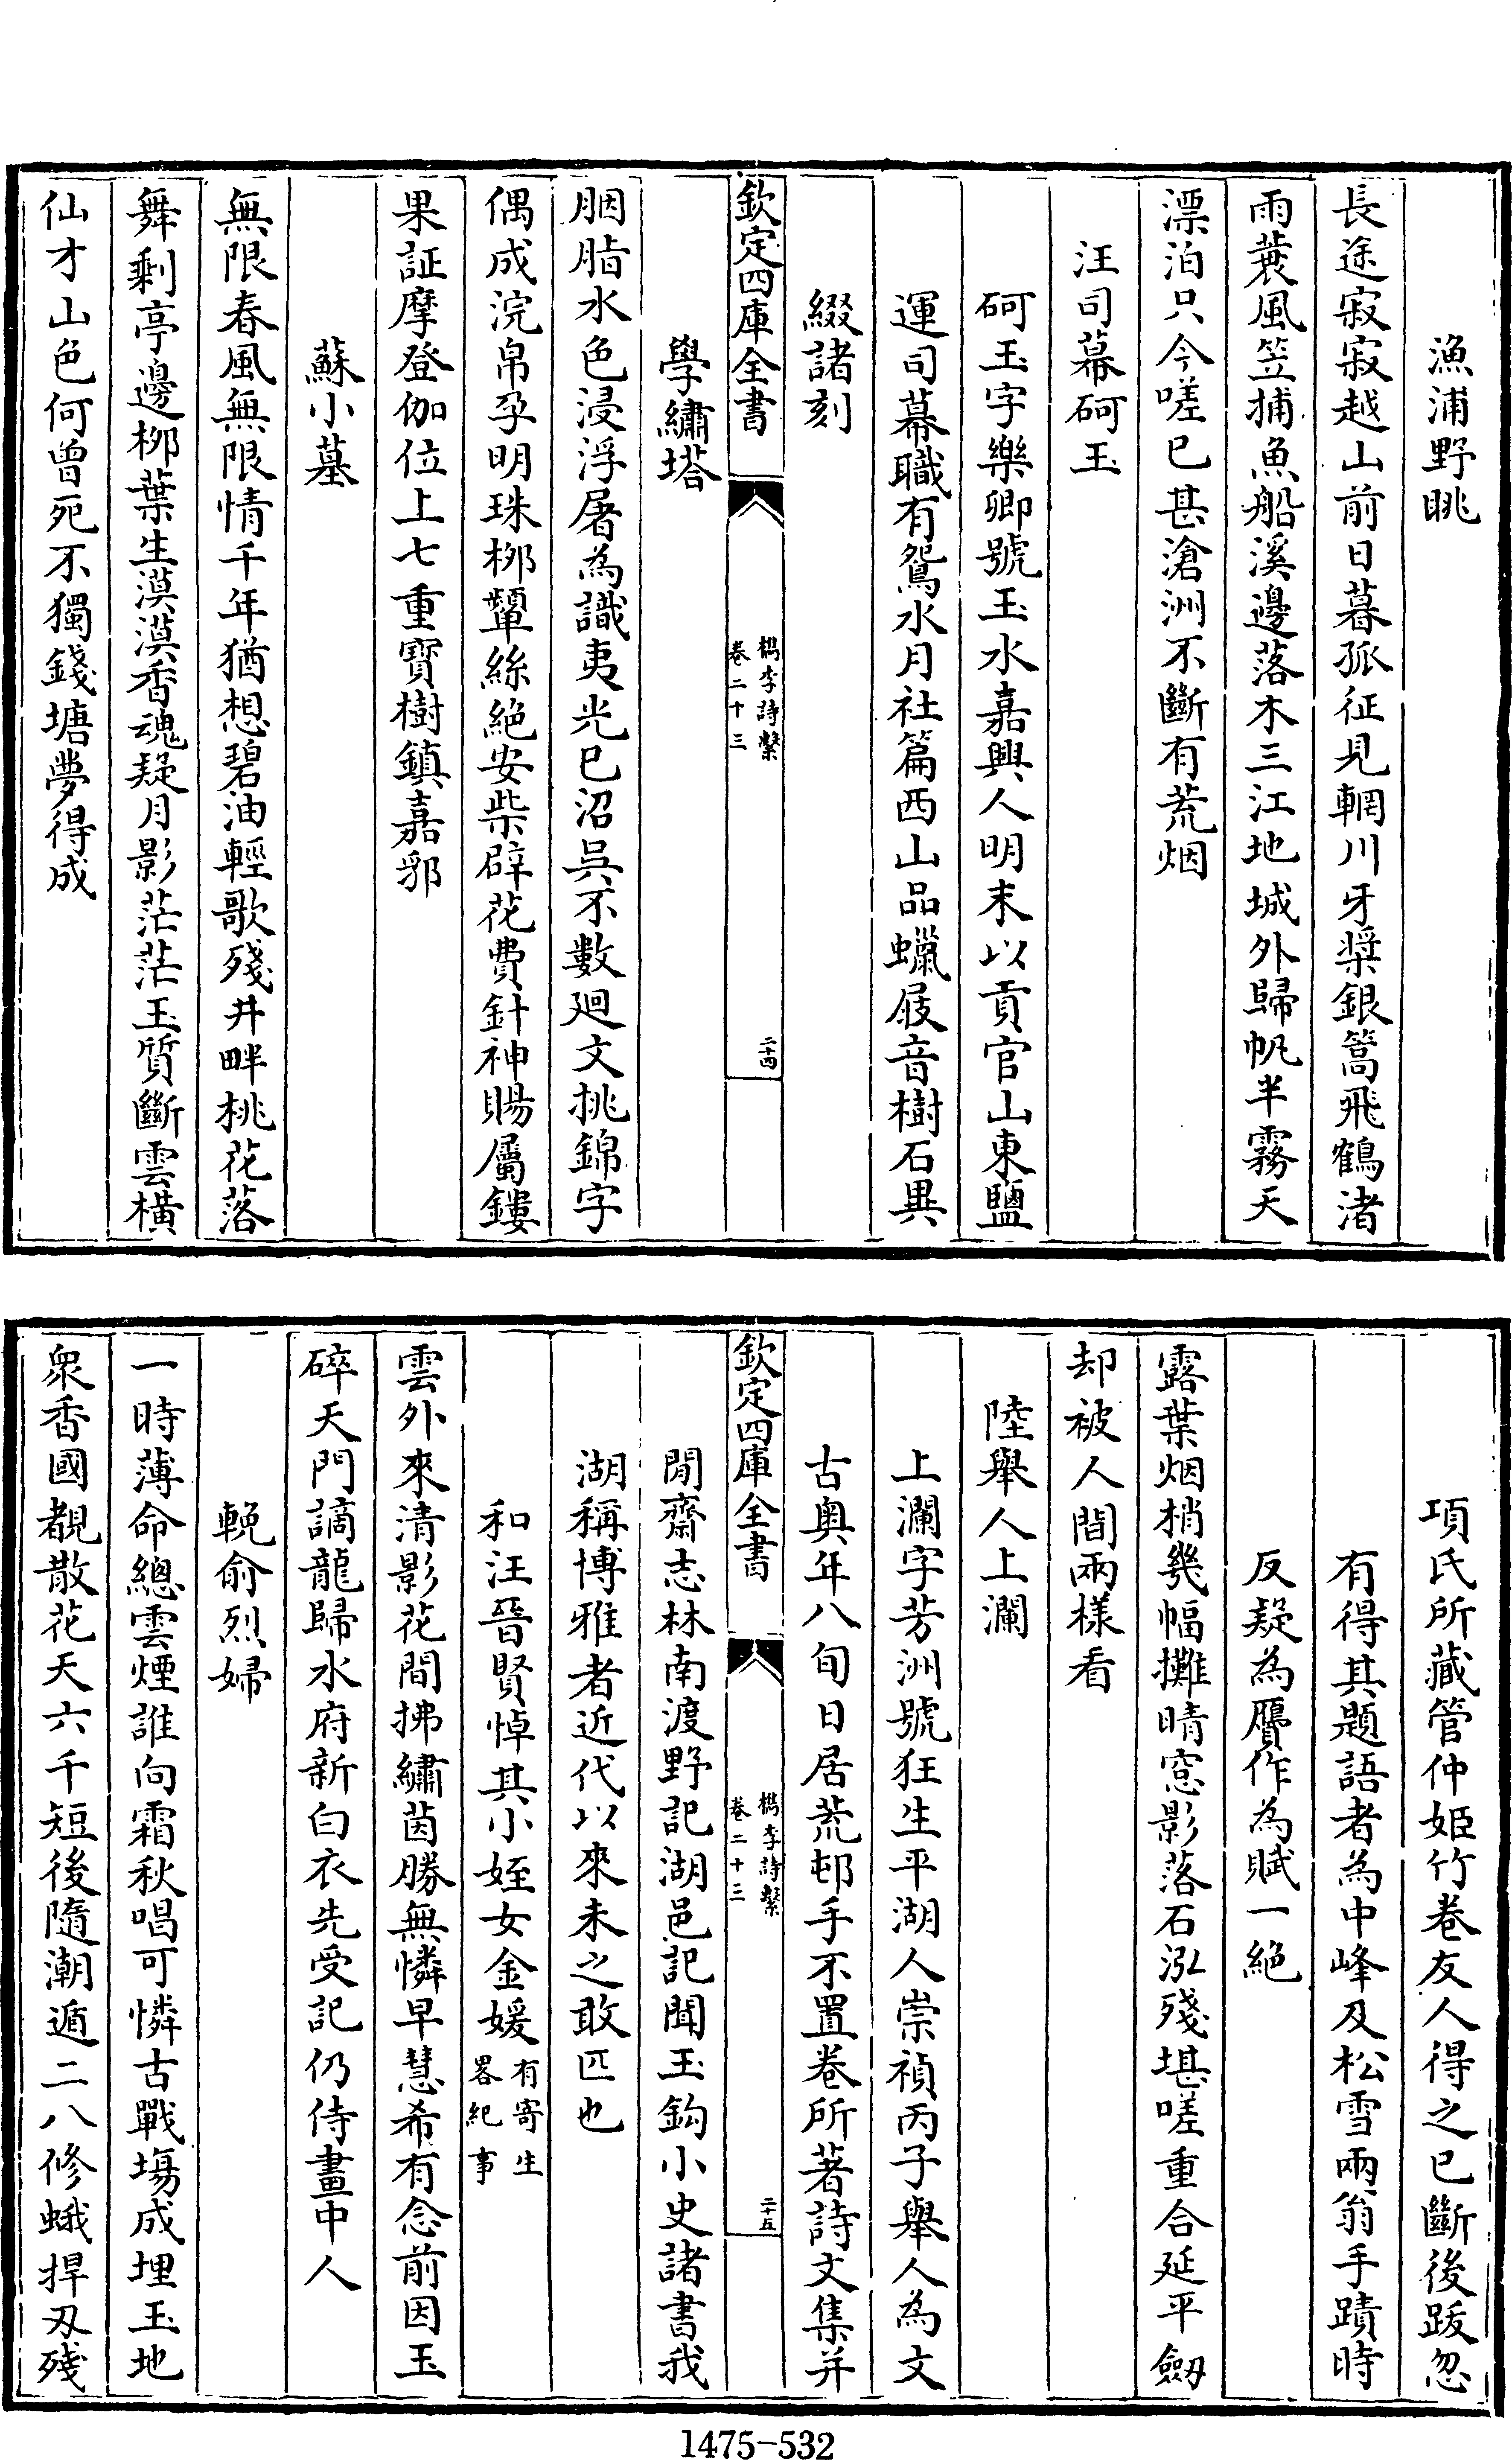 漁浦野眺
長途寂寂越山前日暮孤征見輞川牙槳銀篙飛鶴渚
雨蓑風笠捕魚船溪邊落木三江地城外歸帆半霧天
漂泊只今嗟已甚滄洲不斷有荒烟
汪司幕砢玉
砢玉字樂卿號玉水嘉興人明末以貢官山東鹽
運司幕職有鴛水月社篇西山品蠟屐音樹石異
綴諸刻
欽定四庫全書
檇李詩繫
卷二十三
二十四
學繡塔
胭脂水色浸浮屠為識夷光已沼吳不數廻文挑錦字
偶成浣帛孕明珠柳顰絲絕安柴辟花費針神賜屬鏤
果証摩登伽位上七重寶樹鎮嘉邪
蘇小墓
無限春風無限情千年猶想碧油輕歌殘井畔桃花落
舞剩亭邊柳葉生漠漠香魂疑月影茫茫玉質斷雲橫
仙才山色何曾死不獨錢塘夢得成
項氏所藏管仲姬竹卷友人得之已斷後跋忽
有得其題語者為中峰及松雪兩翁手蹟時
反疑為贗作為賦一絕
露葉烟梢幾幅攤晴窓影落石泓殘堪嗟重合延平劒
却被人間兩樣看
陸舉人上瀾
上瀾字芳洲號狂生平湖人崇禎丙子舉人為文
古奧年八旬日居荒邨手不置卷所著詩文集并
欽定四庫全書
檇李詩繫
卷二十三
二十五
閒齋志林南渡野記湖邑記聞玉鈎小史諸書我
湖稱博雅者近代以來未之敢匹也
和汪晉賢悼其小姪女金媛有寄生畧紀事
雲外來清影花間拂繡茵勝無憐早慧希有念前因玉
碎天門謫龍歸水府新白衣先受記仍侍畫中人
輓俞烈婦
一時薄命總雲煙誰向霜秋唱可憐古戰塲成埋玉地
衆香國覩散花天六千短後隨潮遁二八修蛾捍刃殘
1475-532